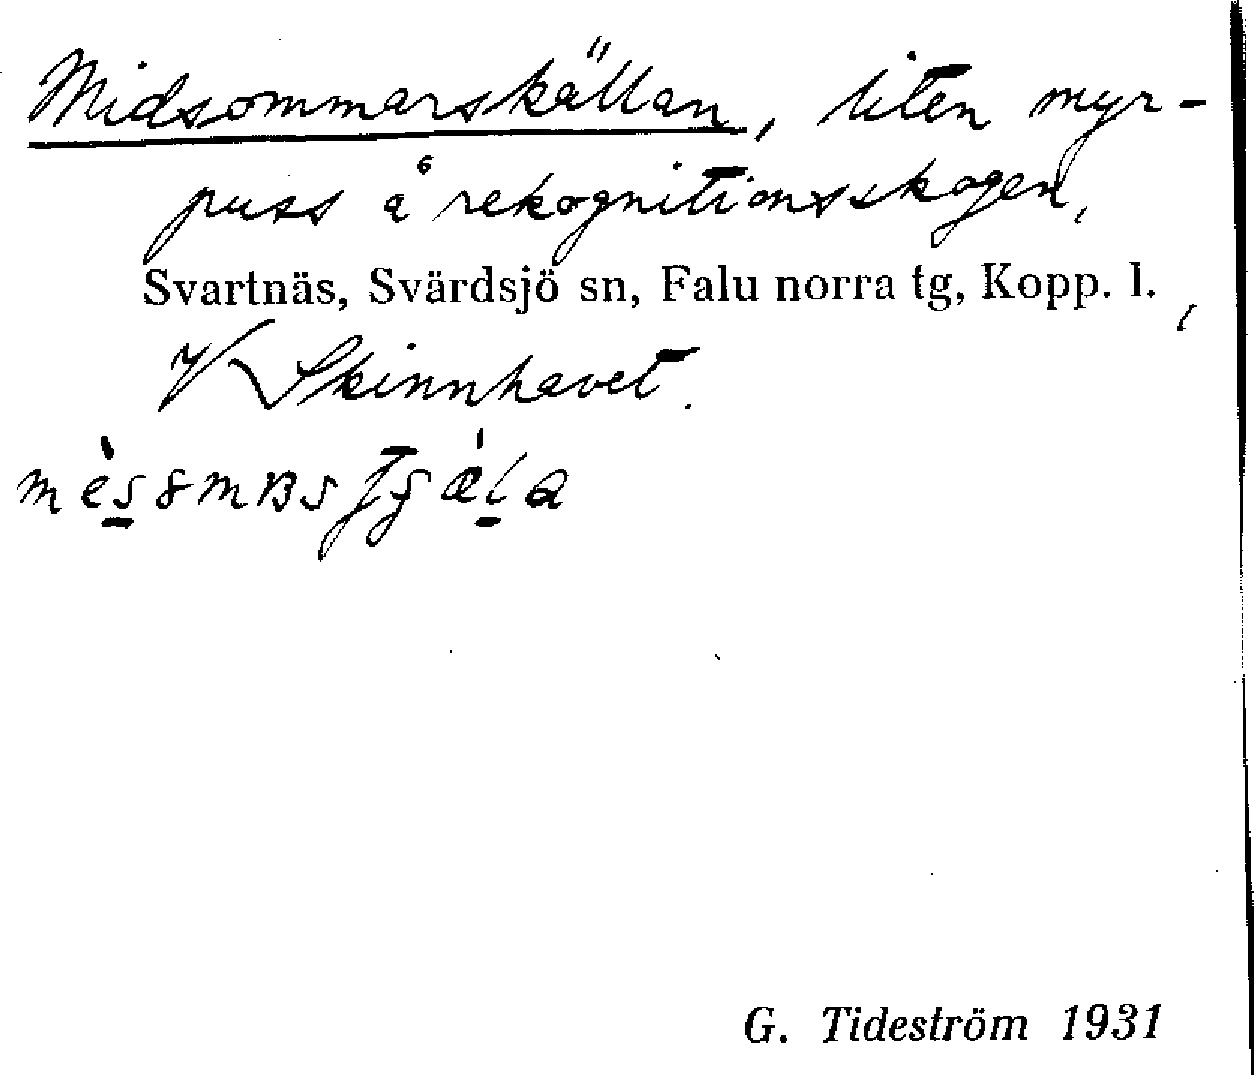 Midsommarskällan, liten myr-
puss å rekognitionsskogen,
Svartnäs, Svärdsjö sn, Falu norra tg, Kopp. l.,
V Skinnhavet.
G. Tideström 1931